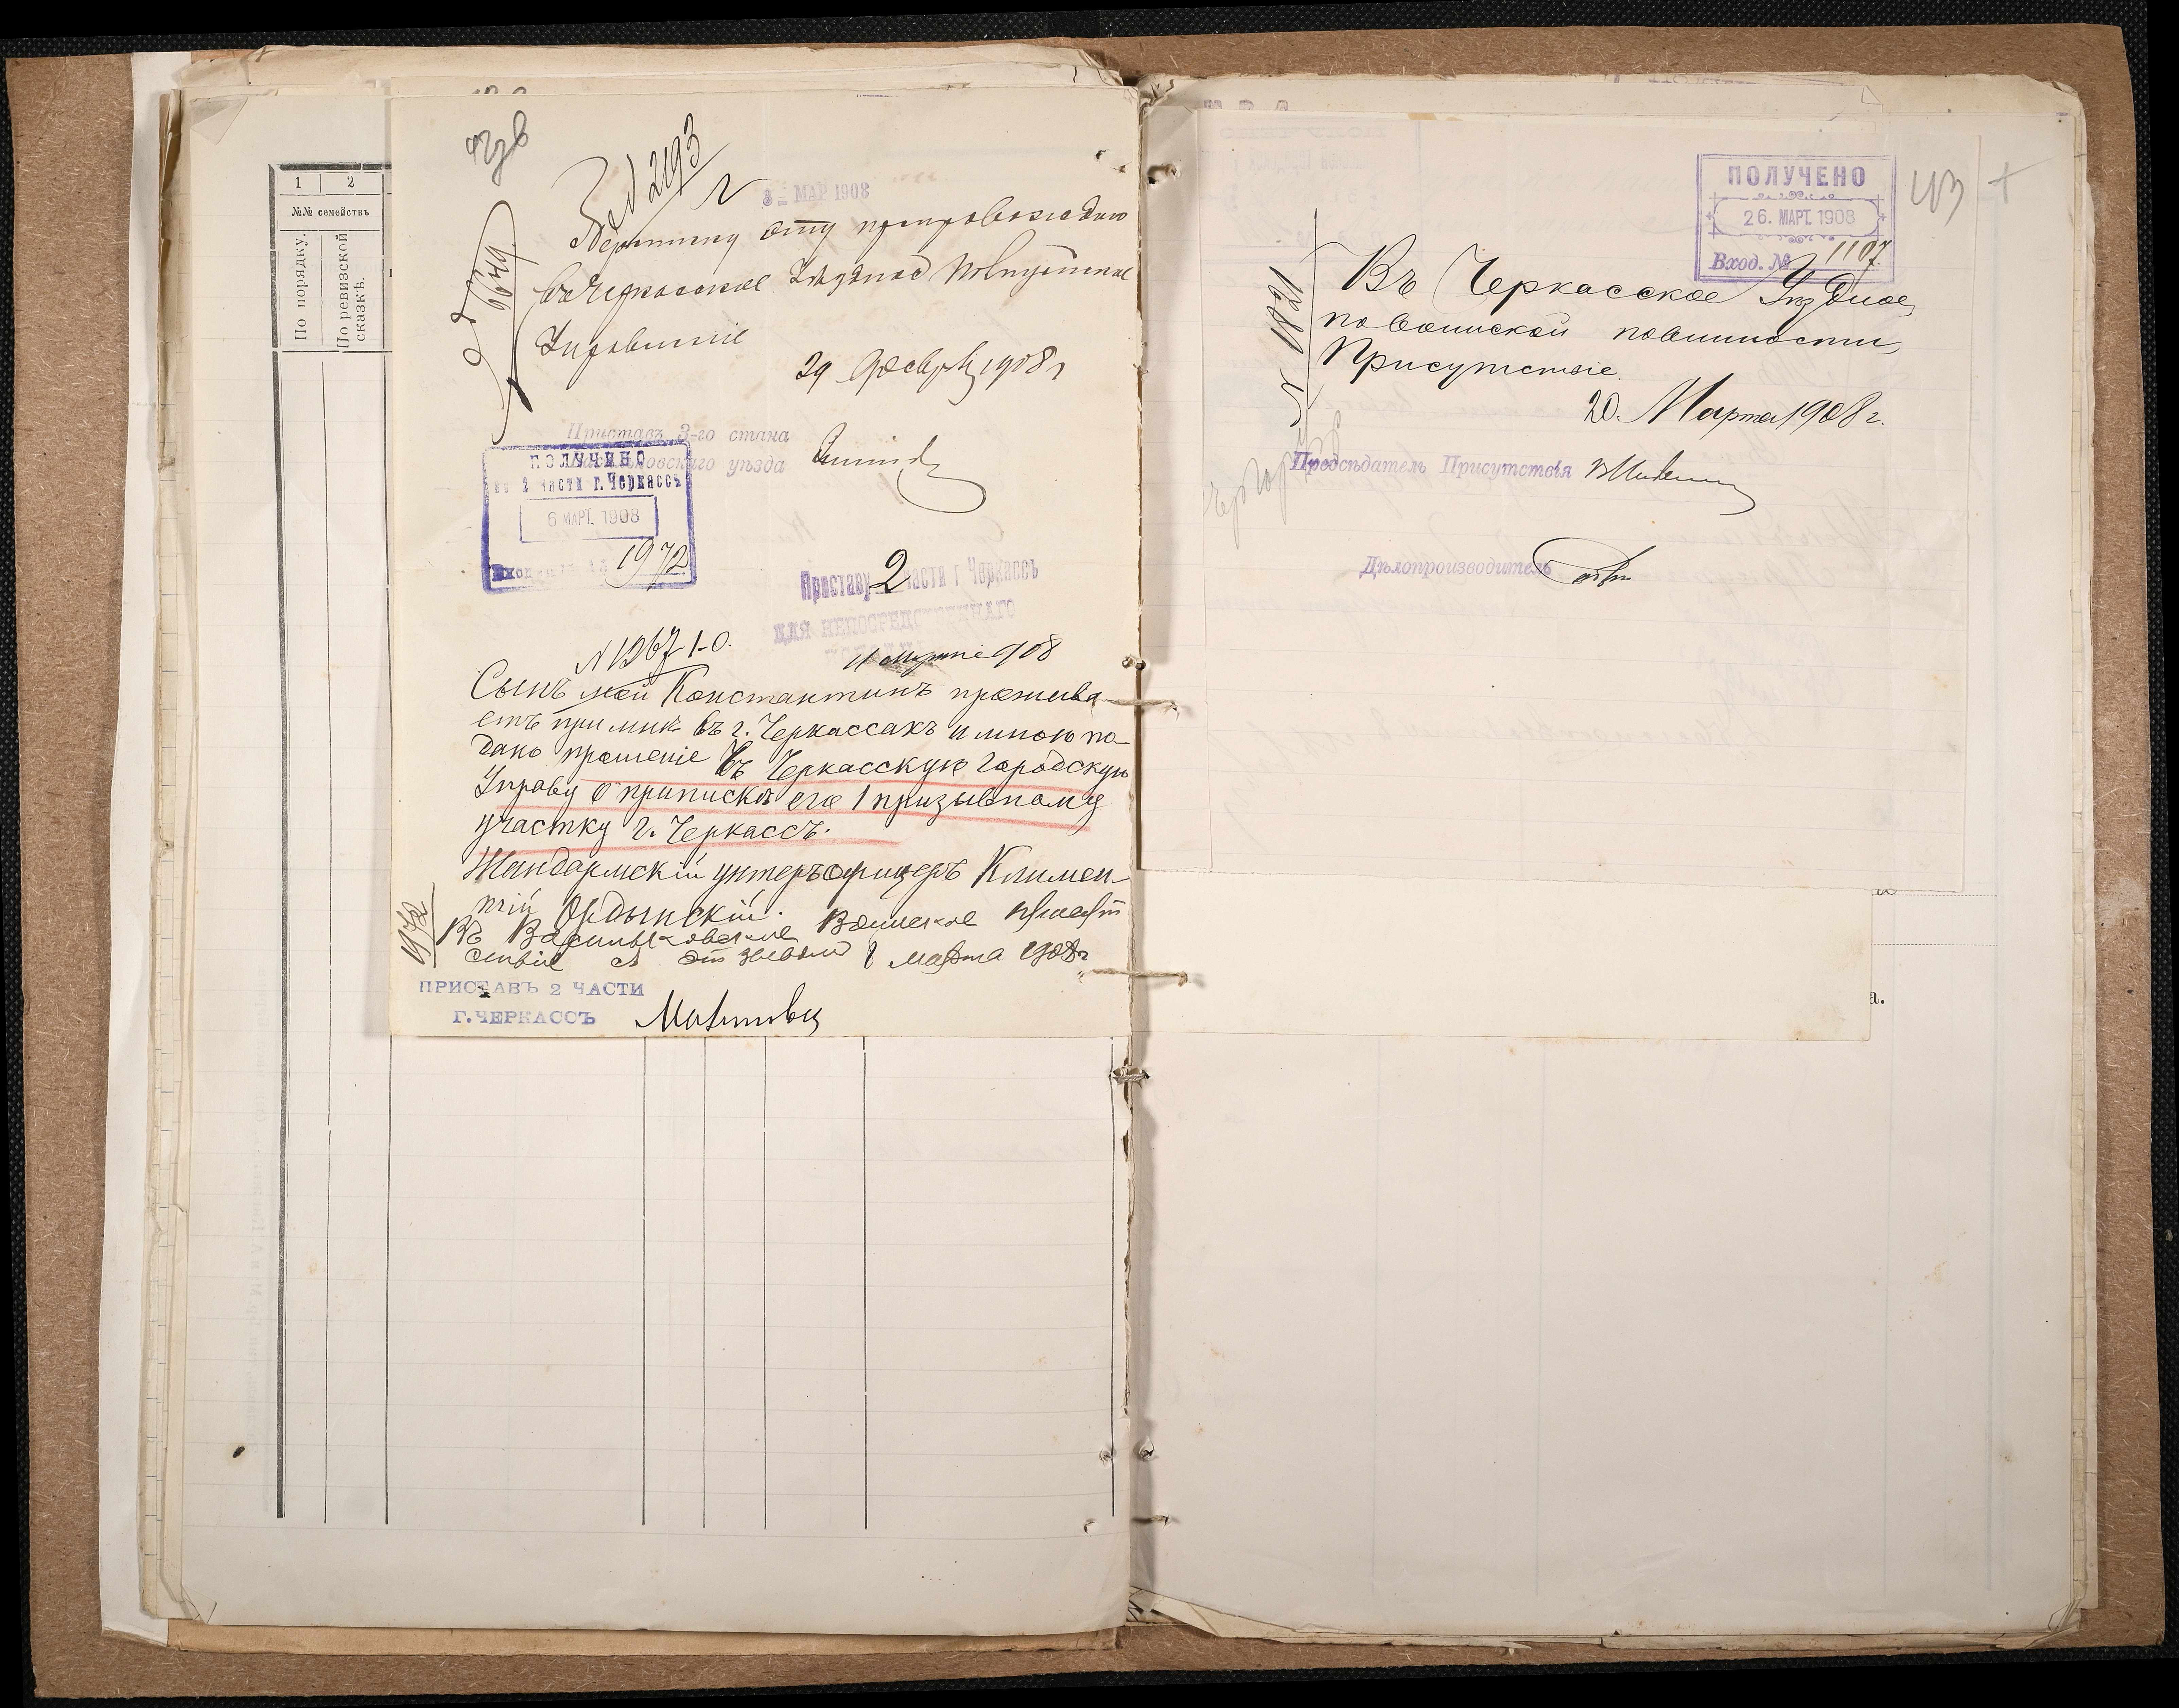 1 2
№№ семействъ
По порядку.
По ревизской сказкѣ.
2193
3 - МАР 1908
въ Черкасское Уѣздное Полицейское
Управленіе
29 Февр. 1908 г
Приставъ 3-го стана
уѣзда
ПОЛУЧЕНО
2 части г. Черкассъ
6 МАРТ. 1908
1972
Приставу 2 части г Черкассъ
ДЛЯ НЕПОСРЕДСТВЕННАГО
N 1267
908
Сынъ мой Константинъ прожива-
етъ при мнѣ въ г. Черкассахъ и мною по-
дано прошеніе Въ Черкасскую Городскую
Управу о припискѣ его 1 призывному
участку г. Черкассъ.
Жандармскій унтеръ офицеръ Климен-
тій Ордынскій.
1972
Въ Васильковское Воинское Присут
ствіе съ отзывомъ 8 марта 1908 г
ПРИСТАВЪ 2 ЧАСТИ
Г. ЧЕРКАССЪ
ПОЛУЧЕНО
26. МАРТ. 1908
Вход. № 1107.
43
1821
Въ Черкасское Уѣздное
по воинской повинности
Присутствіе.
20. Марта 1908 г.
Предсѣдатель Присутствія
Дѣлопроизводитель
а.